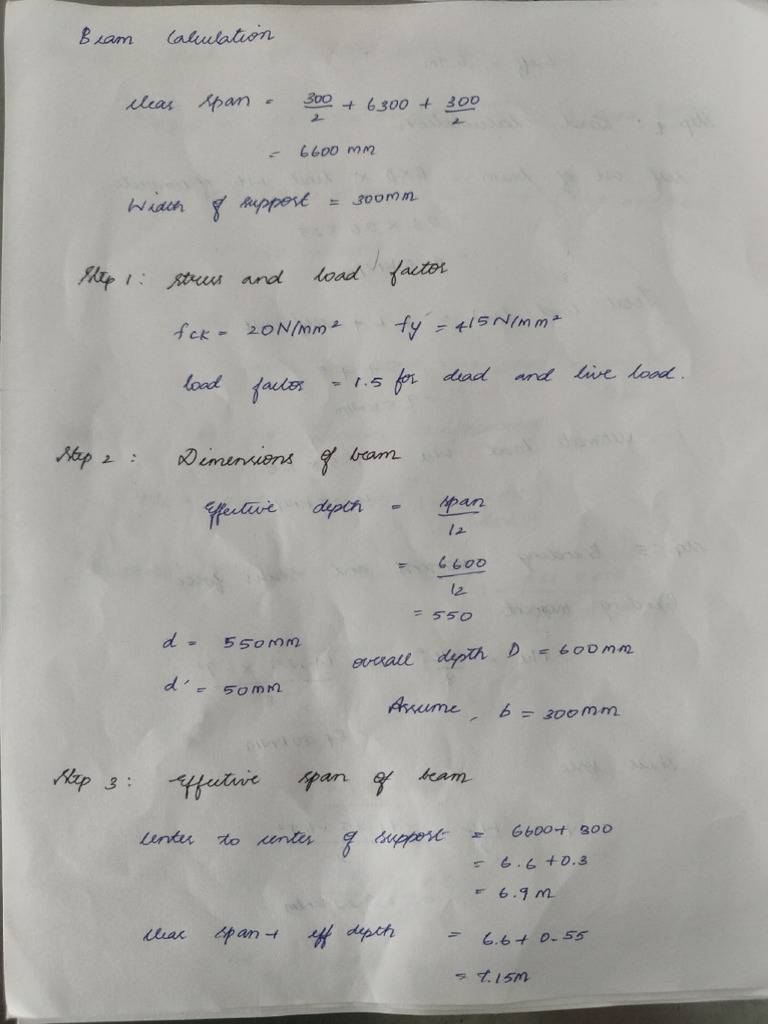 Beam Calculation
clear span = 300/2 + 6300 + 300/2
= 6600 mm
Width of support = 300mm
Step 1: stress and load factor
fck = 20N/mm² fy = 415N/mm²
load factor = 1.5 for dead and live load.
Step 2: Dimensions of beam
Effective depth = span/12
= 6600/12
= 550
d = 550mm
overall depth D = 600mm
d' = 50mm
Assume, b = 300mm
Step 3: Effective span of beam
center to center of support = 6600+300
= 6.6+0.3
= 6.9 m
clear span + eff depth = 6.6+0.55
= 7.15m